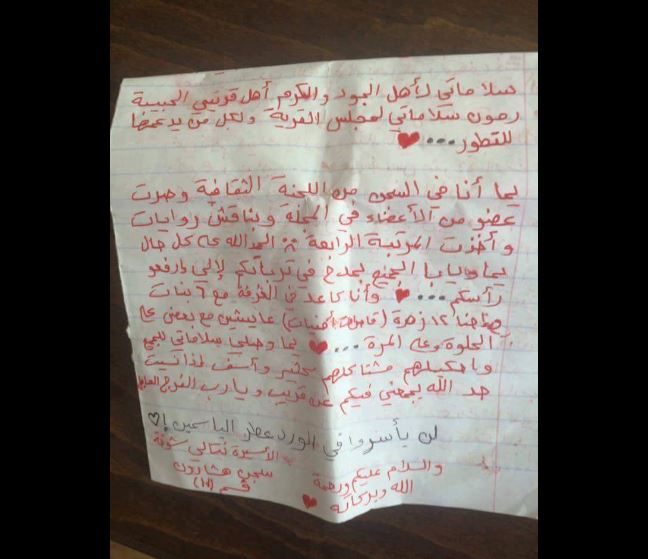 سلاماتي لأهل الجود والكرم أهل قريتي الحبيبة
رمون سلاماتي لمجلس القرية ولكل من يدعمها
للتطور...
يما أنا في السجن من اللجنة الثقافية وصرت
عضو من الأعضاء في المجلة وبناقش روايات
وأخذت المرتبة الرابعة الحمدالله عه كل حال
يما ويابا الجميع بمدح في ترباتكم إلي وارفعو
رأسكم... وأنا قاعدة في الغرفة مع ٦ بنات
١٢ زهرة (قاصرات أمنيات) عايشين مع بعض عه
الحلوة وعه المرة... يما وصلي سلاماتي للجميع
مشتاقلهم كثير وأسف إذا نسيت
حد الله يجمعني فيكم عن قريب ويارب الفرج العاجل
لن يأسروا في الورد عطر الياسمين!
الأسيرة تتالي شوخة
والسلام عليكم ورحمة
سجن هشارون
الله وبركاته
قسم (١١)